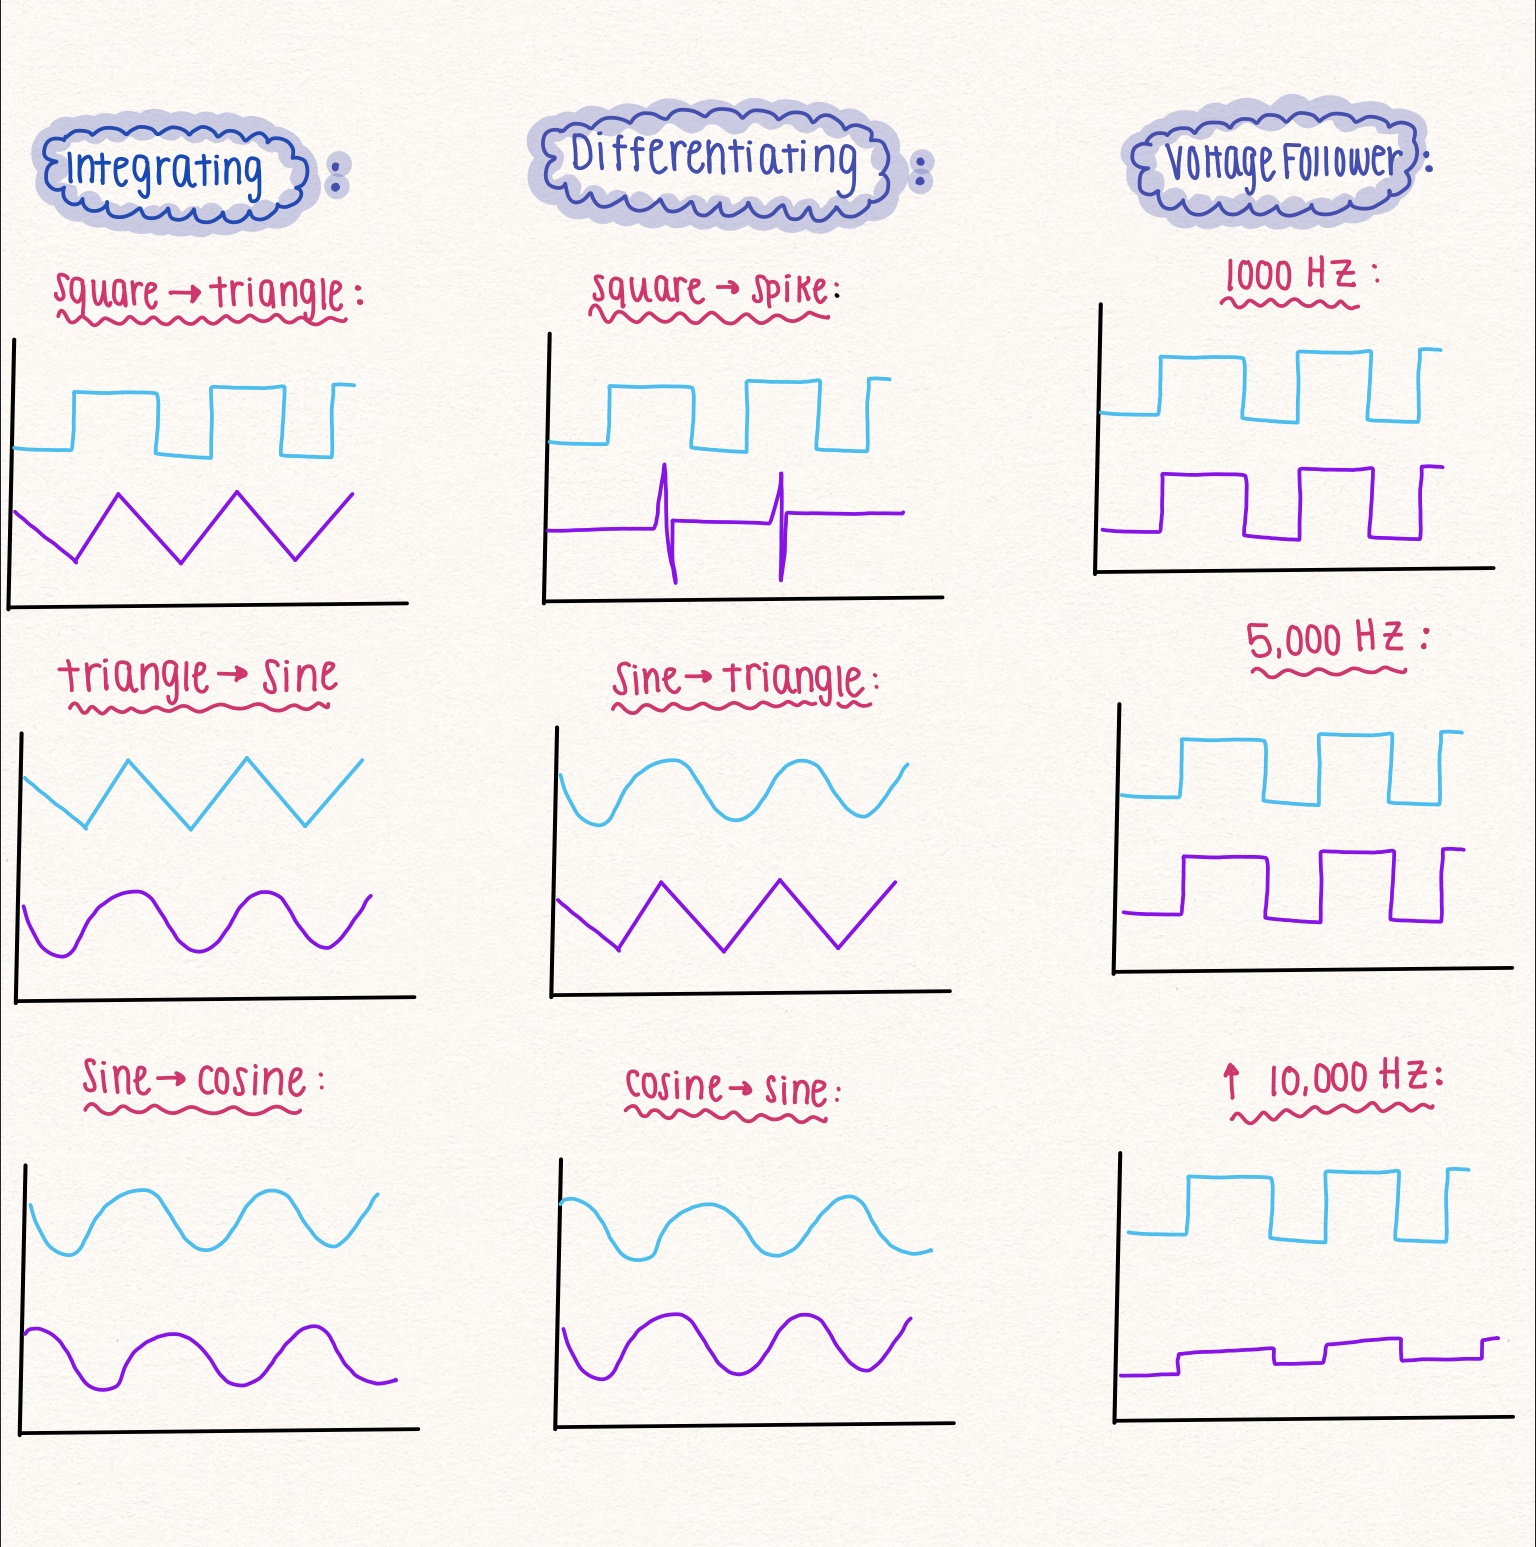 Integrating :
square → triangle :
triangle → sine
sine → cosine :
Differentiating :
square → spike :
sine → triangle :
cosine → sine :
Voltage Follower :
1000 HZ :
5,000 HZ :
↑ 10,000 HZ :